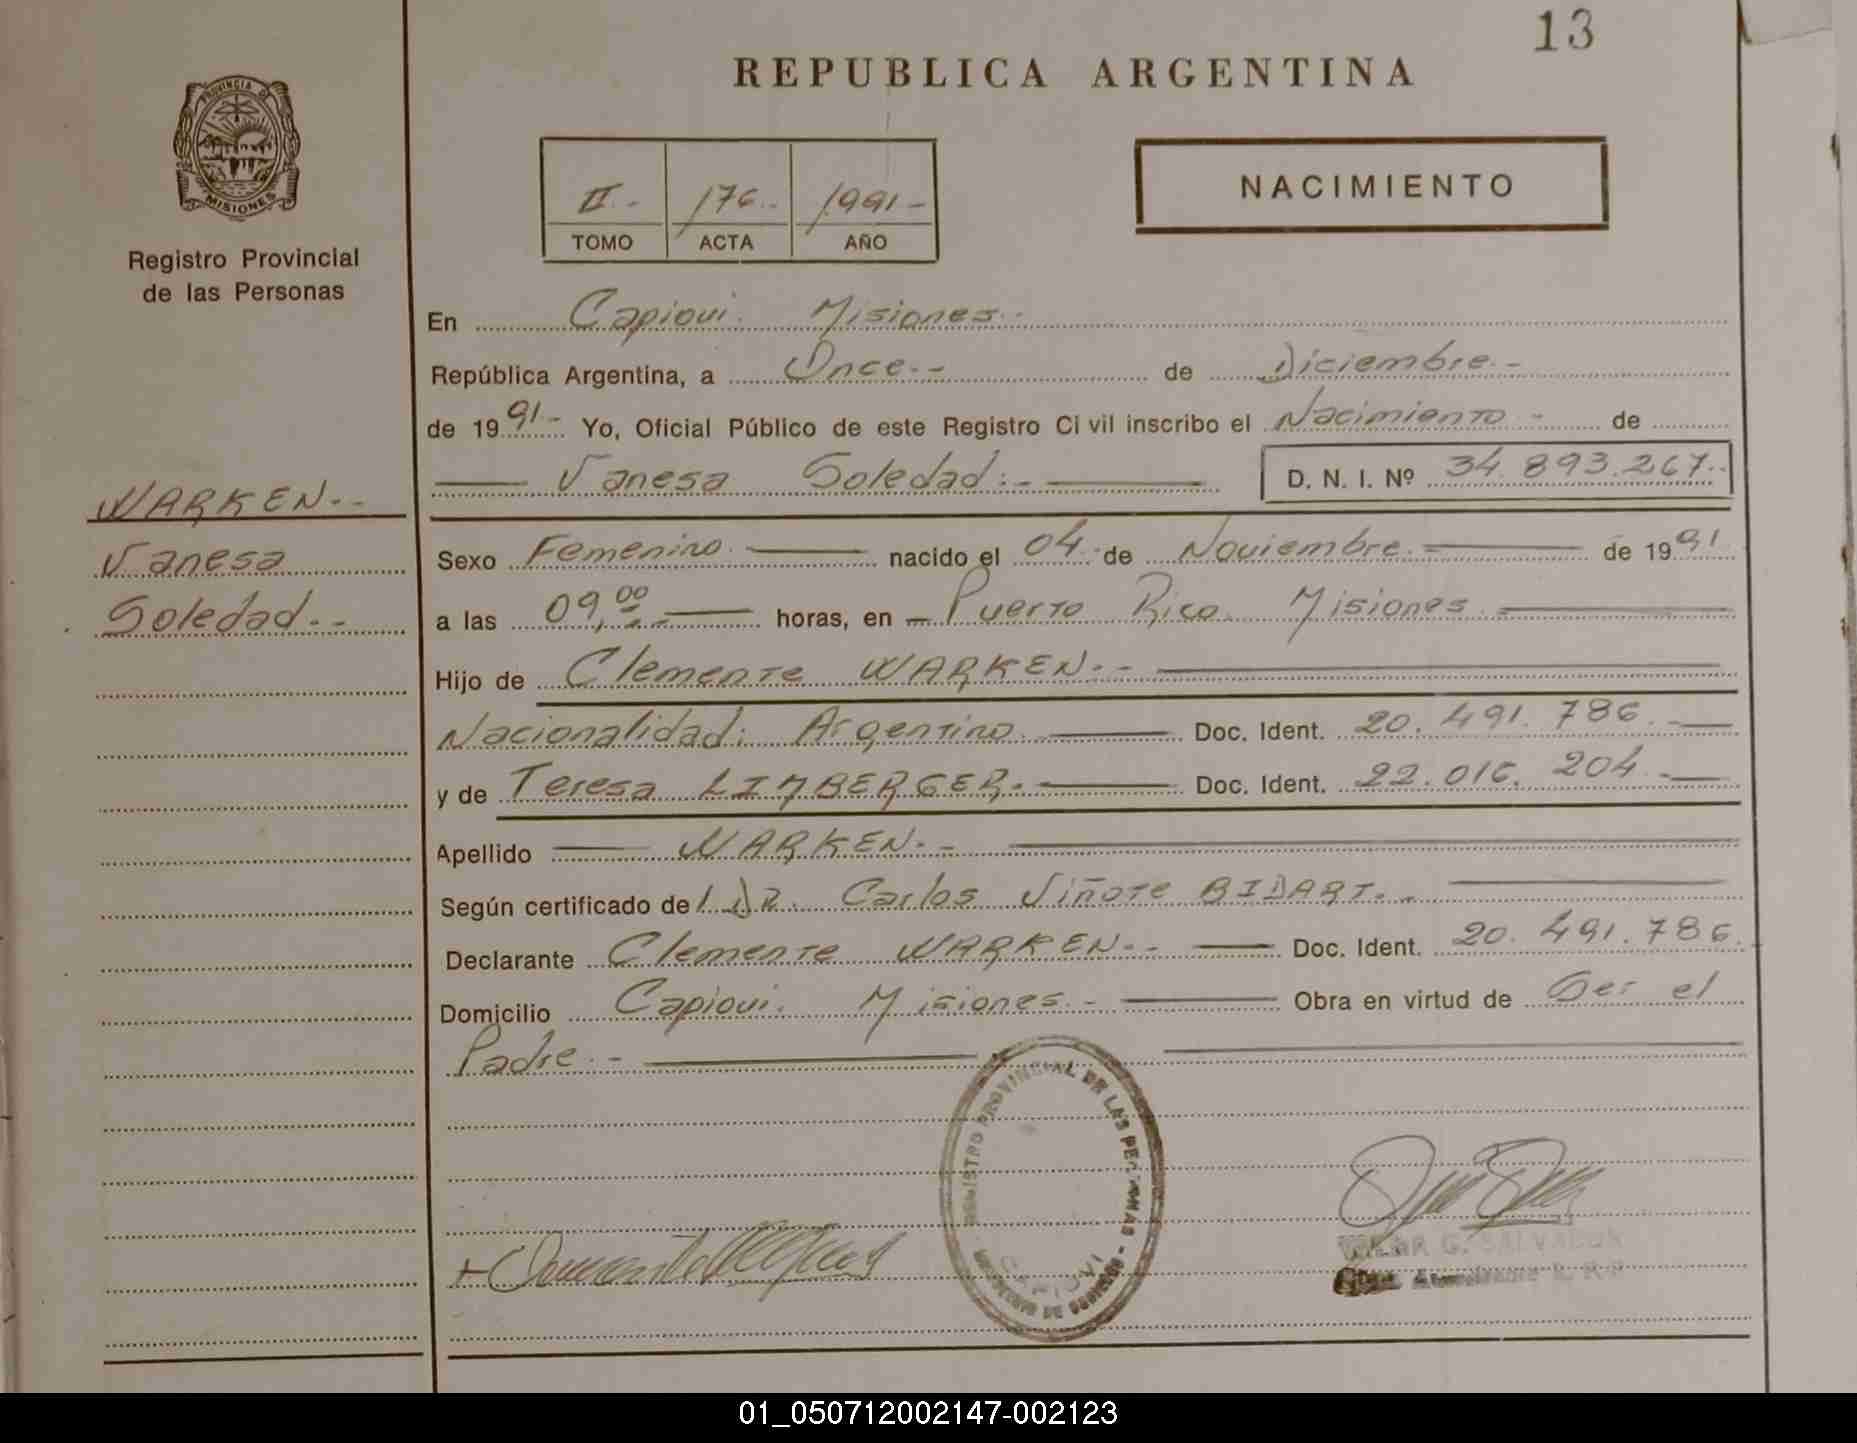 13
REPUBLICA ARGENTINA
PROVINCIA D
MISIONES
Registro Provincial
de las Personas
II.- 176.- 1991-
TOMO ACTA AÑO
NACIMIENTO
En Capiovi. Misiones.-
República Argentina, a Once.- de Diciembre.-
de 1991.- Yo, Oficial Público de este Registro Civil inscribo el Nacimiento - de
Vanesa Soledad:- D. N. I. Nº 34.893.267.-
WARKEN.-
Vanesa
Soledad.-
Sexo Femenino. nacido el 04.- de Noviembre. de 1991
a las 09,00 horas, en Puerto Rico. Misiones.
Hijo de Clemente WARKEN.-
Nacionalidad: Argentino. Doc. Ident. 20.491.786.-
y de Teresa LIMBERGER.- Doc. Ident. 22.016.204.-
Apellido WARKEN.-
Según certificado del DR. Carlos Viñote BIDART.-
Declarante Clemente WARKEN.- Doc. Ident. 20.491.786.
Domicilio Capiovi. Misiones.- Obra en virtud de Ser el
Padre.-
REGISTRO PROVINCIAL DE LAS PERSONAS -
CAPIOVI
G. SALVADOR
01_050712002147-002123